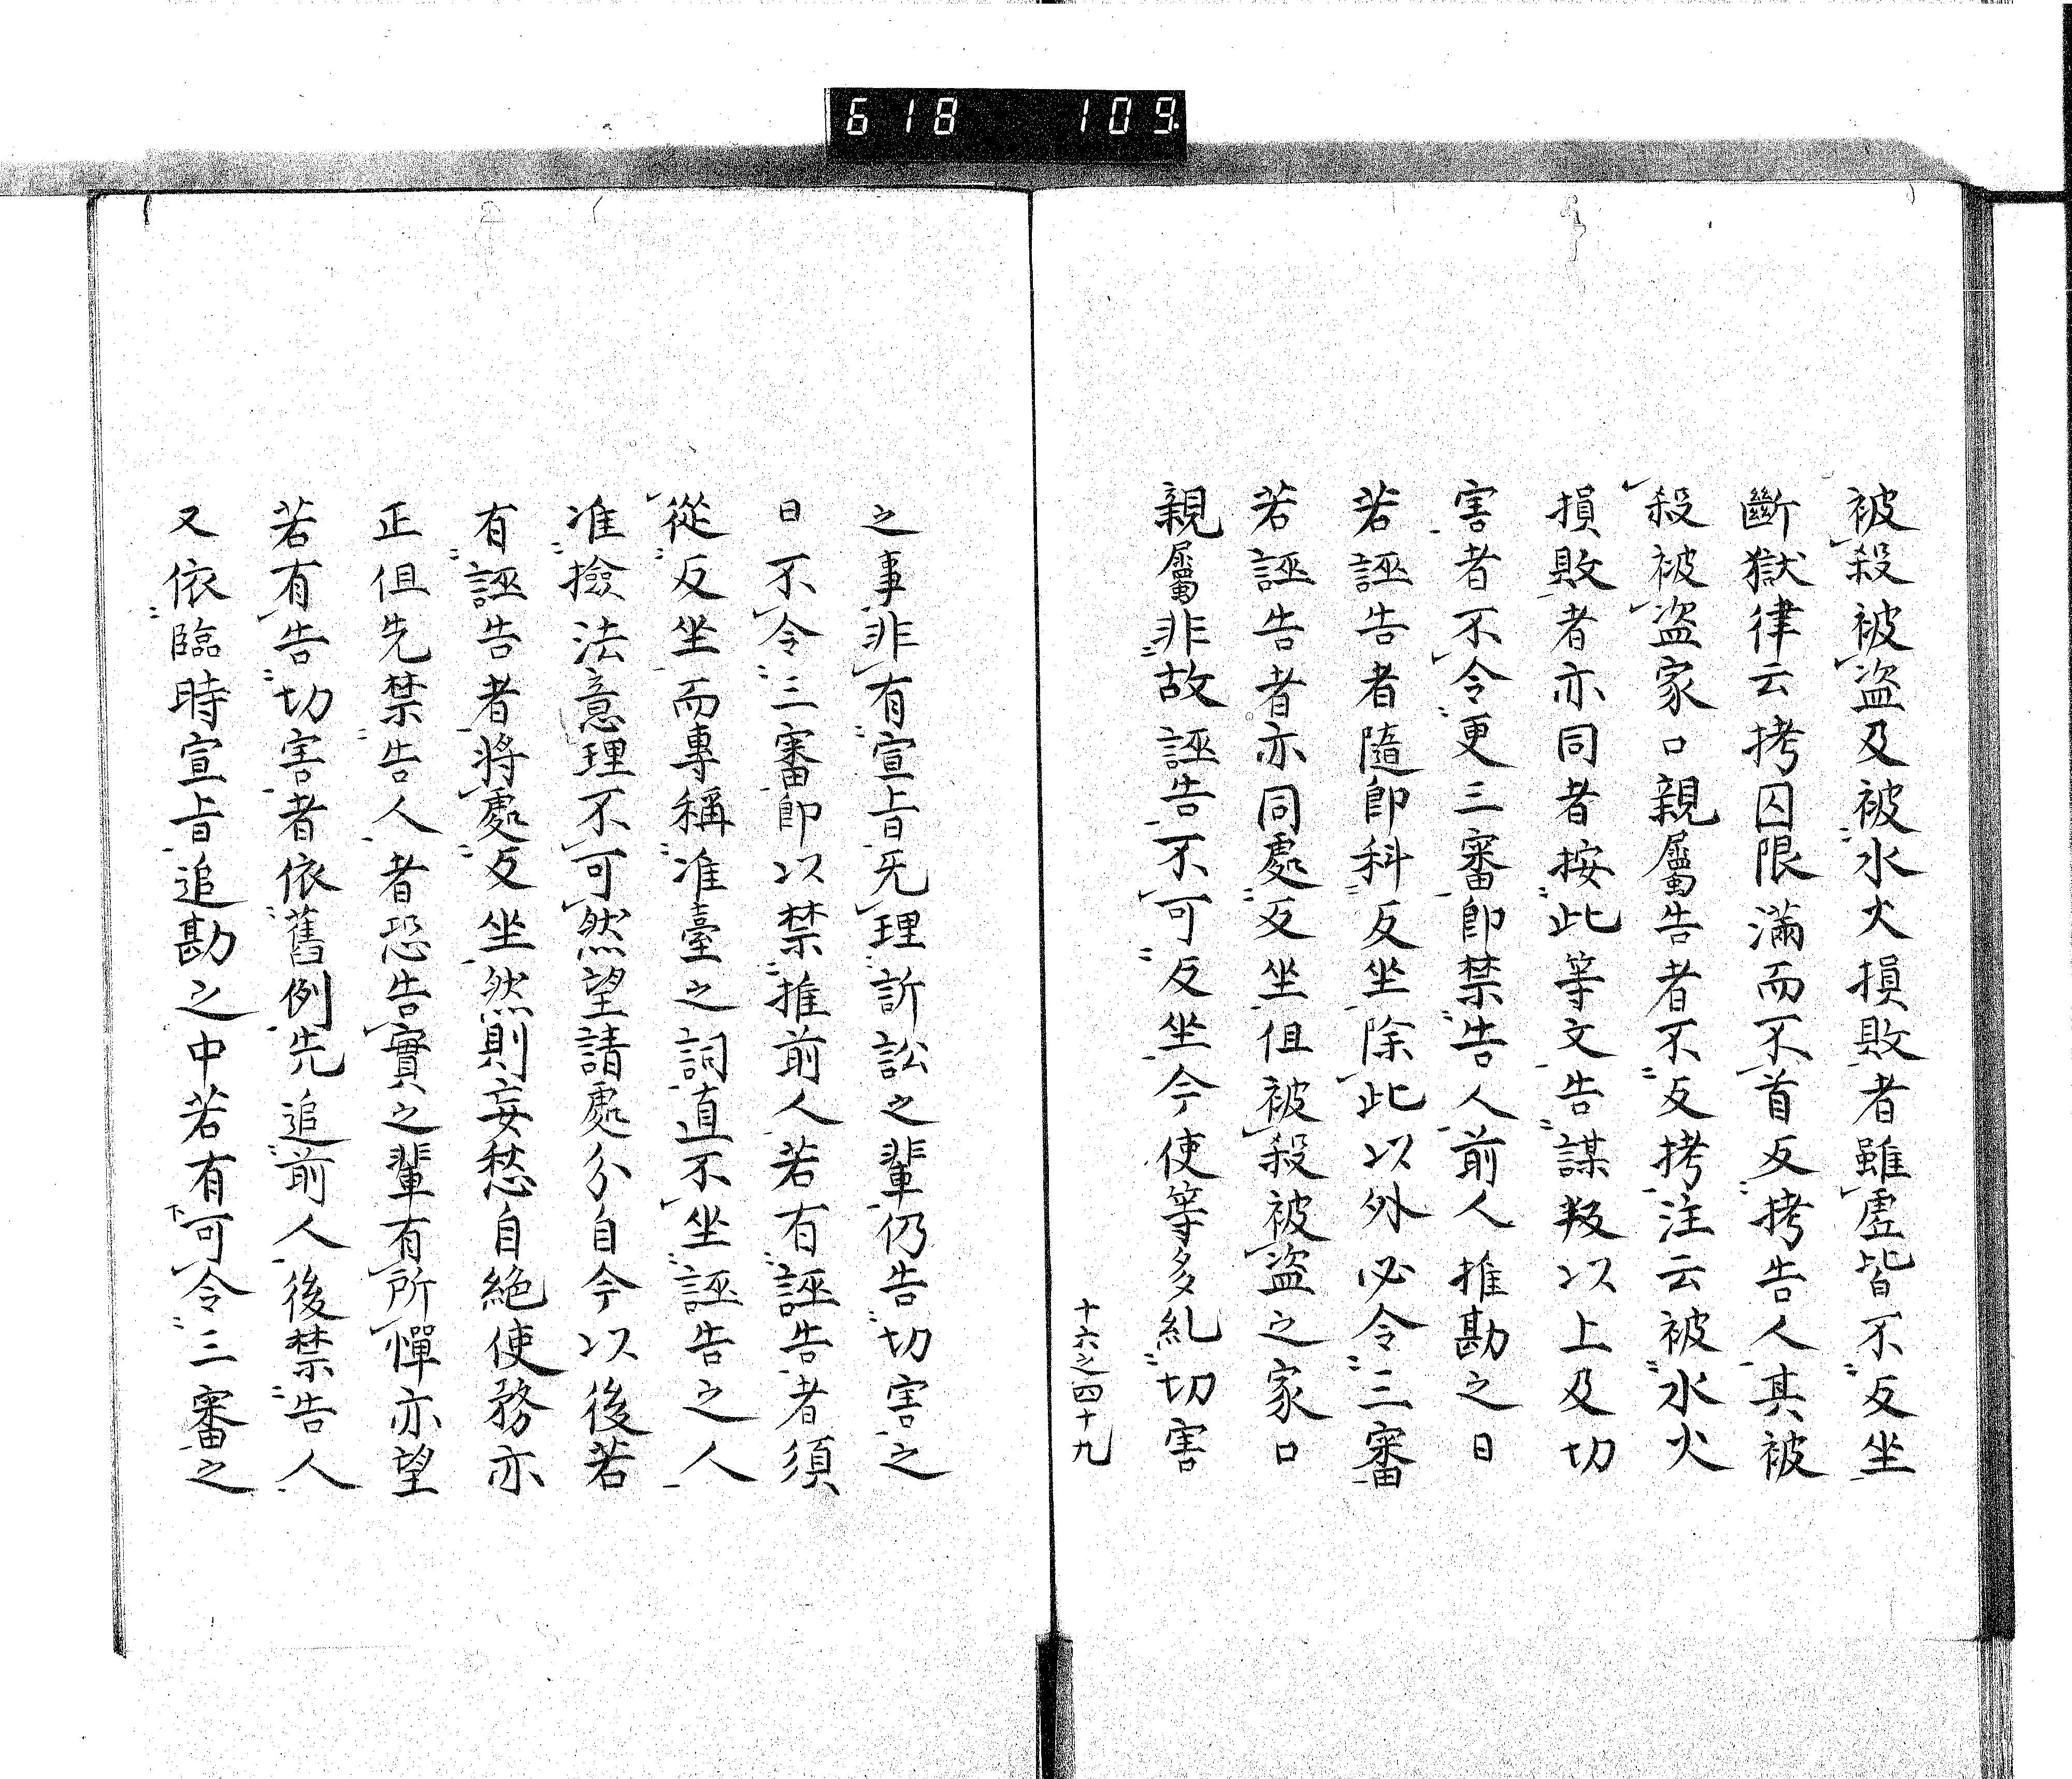 618 109
被殺被盗及被水火損敗者雖虚皆不反坐
斷獄律云拷囚限滿而不首反拷告人其被
殺被盗家口親屬告者不反拷注云被水火
損敗者亦同者按此等文告謀叛以上及切
害者不令更三審即禁告人前人推勘之日
若誣告者隨即科反坐除此以外必令三審
若誣告者亦同處反坐但被殺被盗之家口
親屬非故誣告不可反坐今使等多糺切害
十六之四十九
之事非有宣旨无理訴訟之輩仍告切害之
日不令三審即以禁推前人若有誣告者須
從反坐而專稱准臺之詞直不坐誣告之人
准撿法意理不可然望請處分自今以後若
有誣告者將處反坐然則妄愁自絶使務亦
正但先禁告人者恐告實之輩有所憚亦望
若有告切害者依舊例先追前人後禁告人
又依臨時宣旨追勘之中若有可令三審之
下